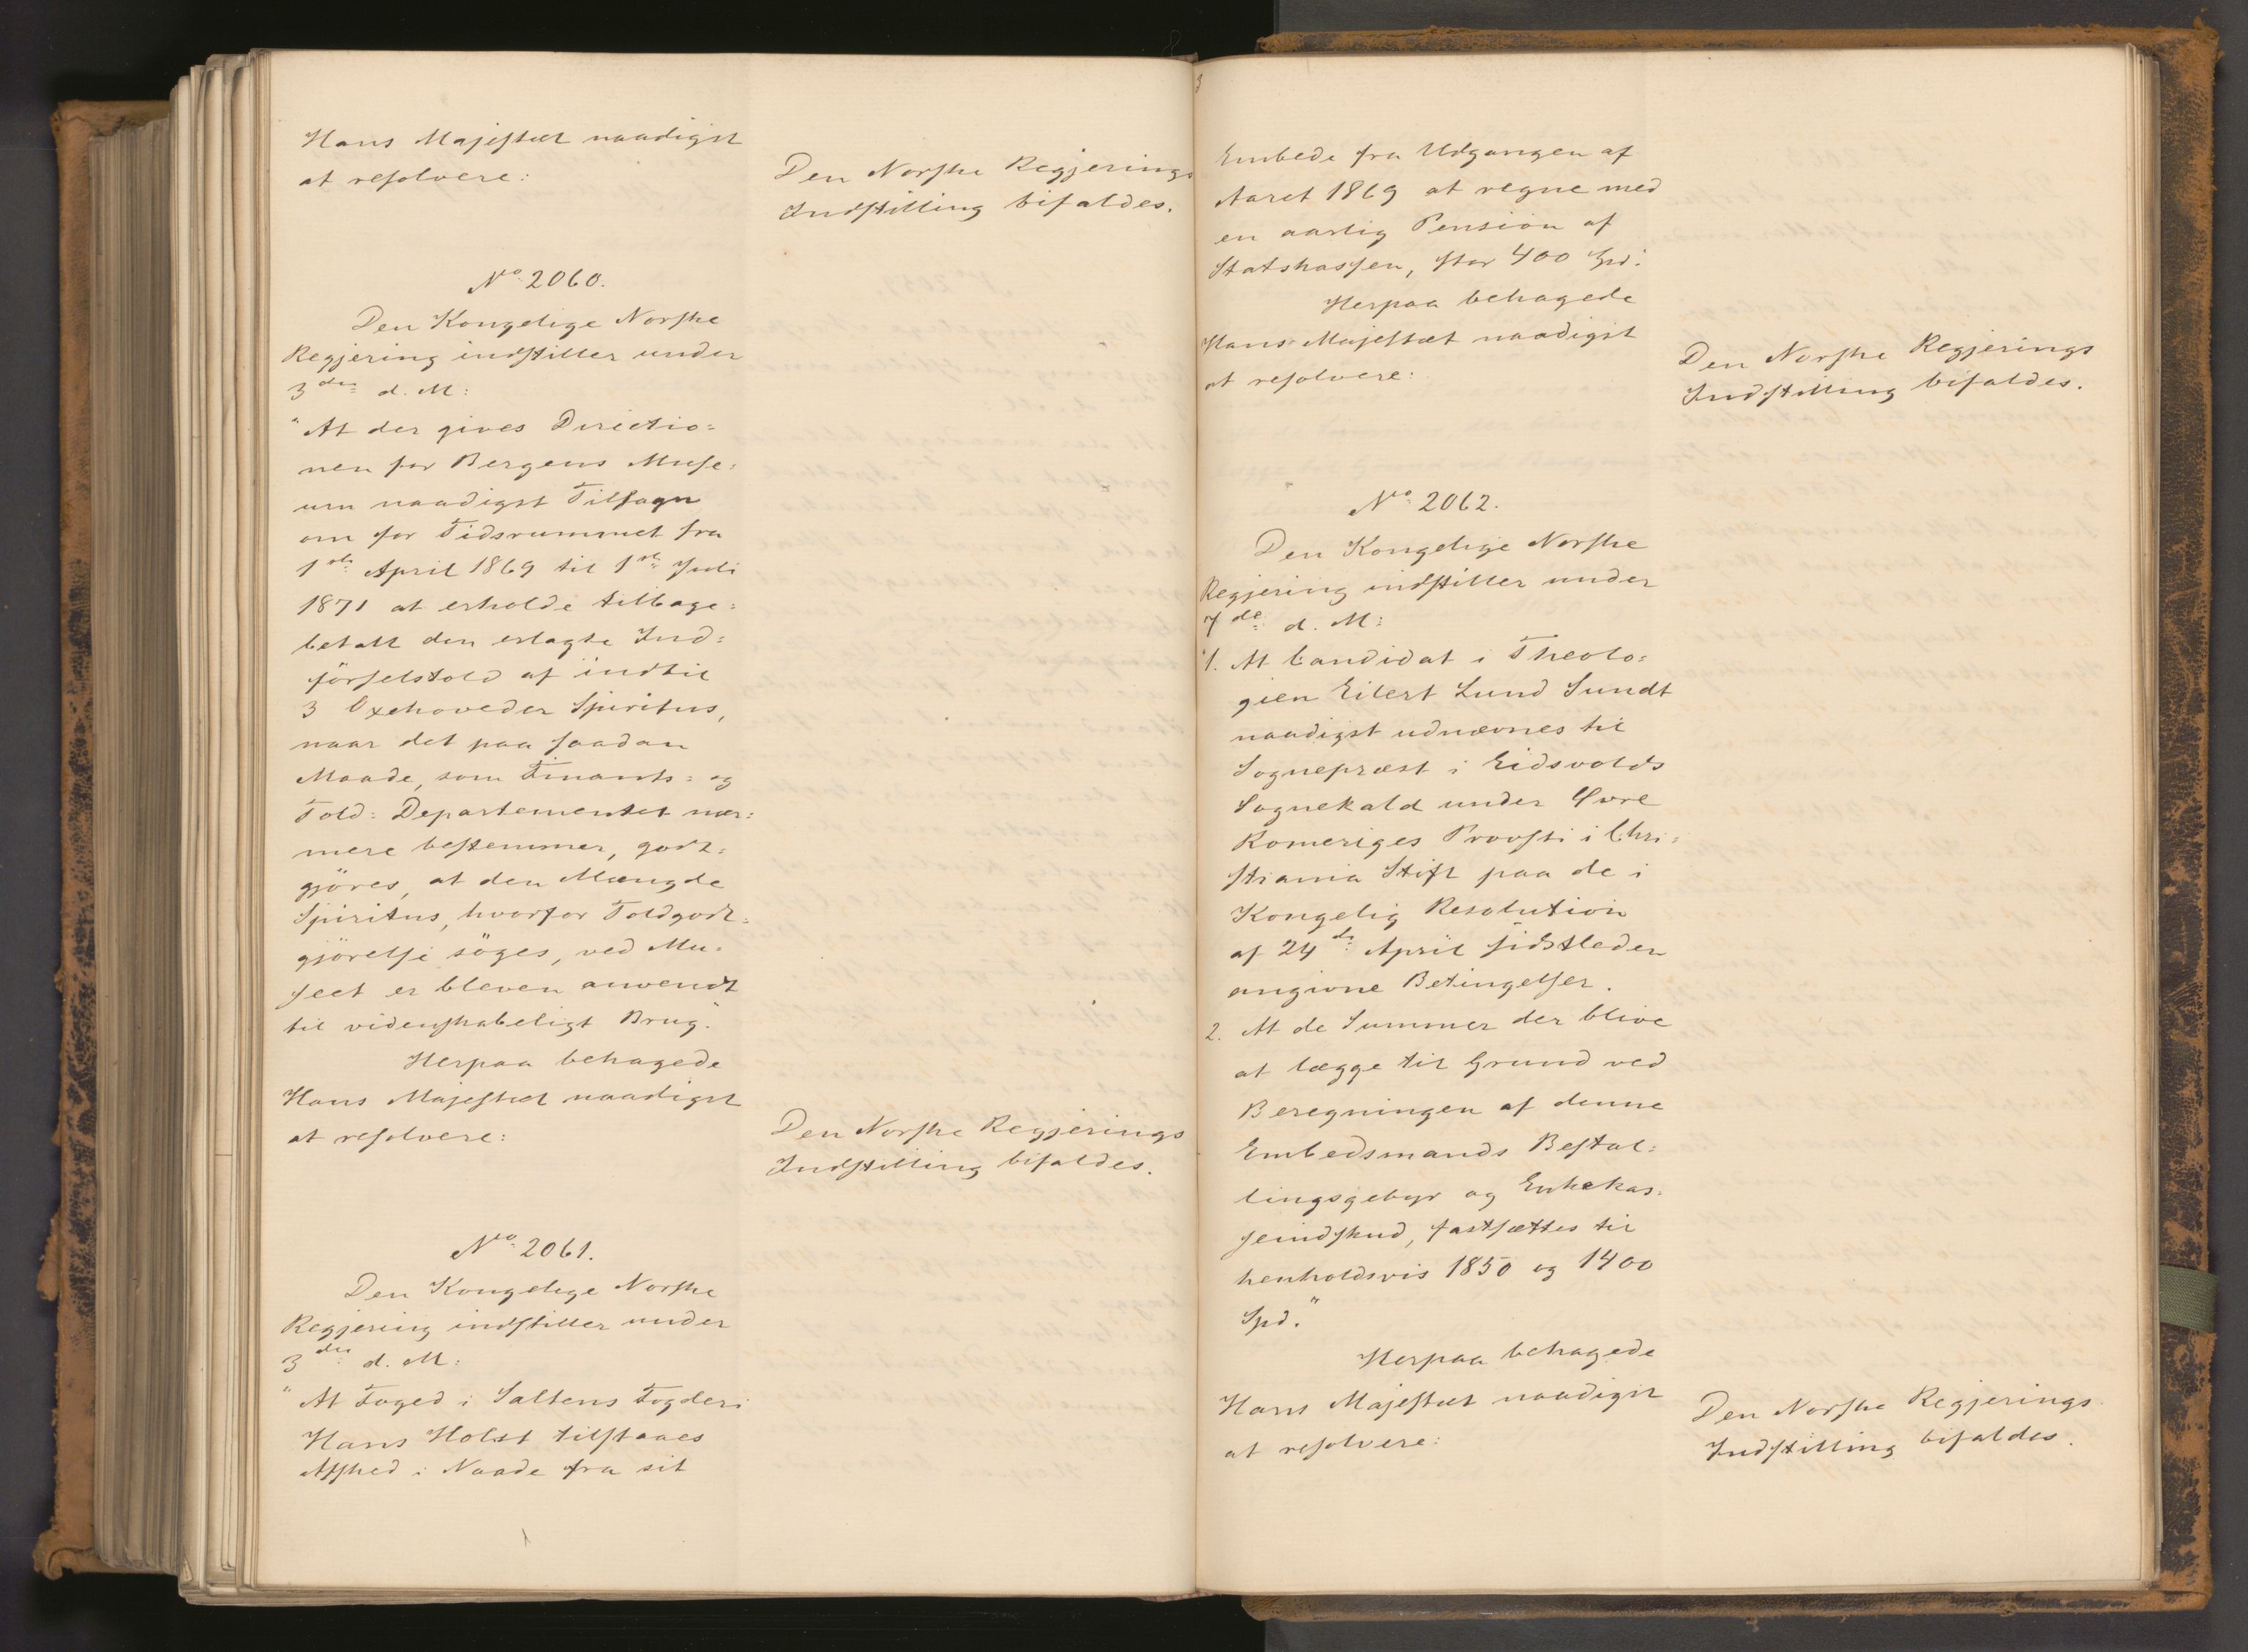 Hans Majestæt naadigst
at resolvere:
Den Norske Regjerings
Indstilling bifaldes.
No 2060.
Den Kongelige Norske
Regjering indstiller under
3die d. M:
"At der gives Directio=
nen for Bergens Muse=
um naadigst Tilsagn
om for Tidsrummet fra
1ste April 1869 til 1ste Juli
1871 at erholde tilbage=
betalt den erlagte Ind=
förselstold af indtil
3 Oxehoveder Spiritus,
naar det paa saadan
Maade, som Finants= og
Told=Departementet nær=
mere bestemmer, godt=
gjöres, at den Mængde
Spiritus, hvorfor Toldgodt=
gjörelse söges, ved Mu=
seet er bleven anvendt
til videnskabeligt Brug."
Herpaa behagede
Hans Majestæt naadigst
at resolvere:
Den Norske Regjerings
Indstilling bifaldes.
No 2061.
Den Kongelige Norske
Regjering indstiller under
3die d. M:
"At Foged i Saltens Fogderi
Hans Holst tilstaaes
Afsked i Naade fra sit
Embede fra Udgangen af
Aaret 1869 at regne med
en aarlig Pension af
Statskassen, stor 400 Spd."
Herpaa behagede
Hans Majestæt naadigst
at resolvere:
Den Norske Regjerings
Indstilling bifaldes.
No 2062.
Den Kongelige Norske
Regjering indstiller under
7de d. M:
"1. At Candidat i Theolo=
gien Eilert Lund Sundt
naadigst udnævnes til
Sognepræst i Eidsvolds
Sognekald under Øvre
Romeriges Provsti i Chri=
stiania Stift paa de i
Kongelig Resolution
af 24de April sidstleden
angivne Betingelser.
2. At de Summer der blive
at lægge til Grund ved
Beregningen af denne
Embedsmands Bestal=
lingsgebyr og Enkekas=
seindskud, fastsættes til
henholdsvis 1850 og 1400
Spd."
Herpaa behagede
Hans Majestæt naadigst
at resolvere:
Den Norske Regjerings
Indstilling bifaldes.